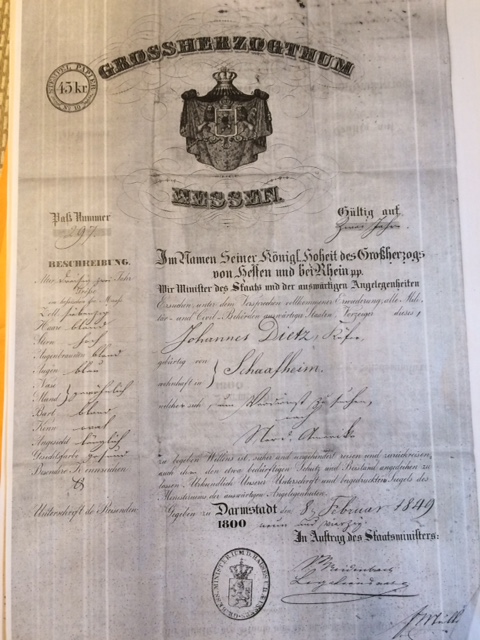 GROSSHERZOGTHUM
STEMPEL PAPIER
45 kr.
HESSEN.
Paß Nummer
297
Gültig auf
BESCHREIBUNG.
Im Namen Seiner Königl. Hoheit des Großherzogs
von Hessen und bei Rhein pp.
Wir Minister des Staats und der auswärtigen Angelegenheiten
Ersuchen, unter dem Versprechen vollkommener Erwiederung, alle Mili-
tär- und Civil-Behörden auswärtiger Staaten Vorzeiger dieses,
Johannes Dietz, Küfer,
gebürtig von
wohnhaft in
Schaafheim.
welcher sich, um Verdienst zu suchen,
nach
Nord Amerika
zu begeben Willens ist, sicher und ungehindert reisen und zurückreisen,
auch ihm den etwa bedürftigen Schutz und Beistand angedeihen zu
lassen. Urkundlich Unserer Unterschrift und beigedruckten Siegels des
Ministeriums der auswärtigen Angelegenheiten.
Gegeben zu Darmstadt den 8. Februar 1849
1800 neun und vierzig
In Auftrag des Staatsministers:
Alter
Zoll
Haare blond
Stirn hoch
Augenbraunen blond
Augen blau
Nase
Mund
gewöhnlich
Bart blond
Kinn oval
Angesicht länglich
Gesichtsfarbe gesund
Besondere Kennzeichen
Unterschrift des Reisenden